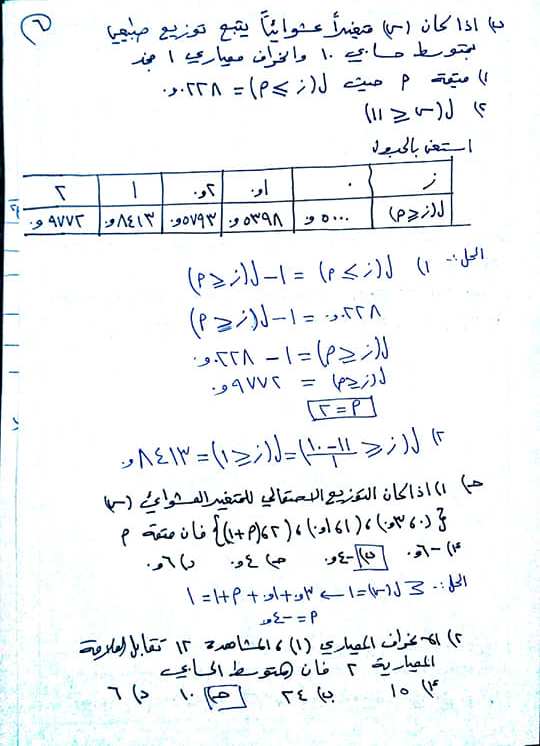 ٦
ب) اذا كان (س) متغيراً عشوائياً يتبع توزيع طبيعي
بمتوسط حسابي ١٠ وانحراف معياري ١ جد
١) قيمة م حيث ل(ز ≥ م) = ٠٢٢٨و.
٢) ل(س ≤ ١١)
استعن بالجدول
ز | ٠ | ١و. | ٢و. | ١ | ٢
ل(ز≤م) | ٥٠٠٠و. | ٥٣٩٨و. | ٥٧٩٣و. | ٨٤١٣و. | ٩٧٧٢و.
الحل:- ١) ل(ز ≥ م) = ١ - ل(ز ≤ م)
٠٢٢٨و. = ١ - ل(ز ≤ م)
ل(ز ≤ م) = ١ - ٠٢٢٨و.
ل(ز≤م) = ٩٧٧٢و.
م = ٢
٢) ل(ز ≤ (١١-١٠)/١) = ل(ز ≤ ١) = ٨٤١٣و.
جـ) ١) اذا كان التوزيع الاحتمالي للمتغير العشوائي (س)
{(٠، ٣و.)، (١، ١و.)، (٢، (م+١))} فان قيمة م
أ) -٦و. ب) -٤و. جـ) ٤و. د) ٦و.
الحل:- Σ ل(س) = ١ ← ٣و. + ١و. + م + ١ = ١
م = -٤و.
٢) الانحراف المعياري (١)، المشاهدة ١٢ تقابل العلامة
المعيارية ٢ فان المتوسط الحسابي
أ) ١٥ ب) ٢٤ جـ) ١٠ د) ٦